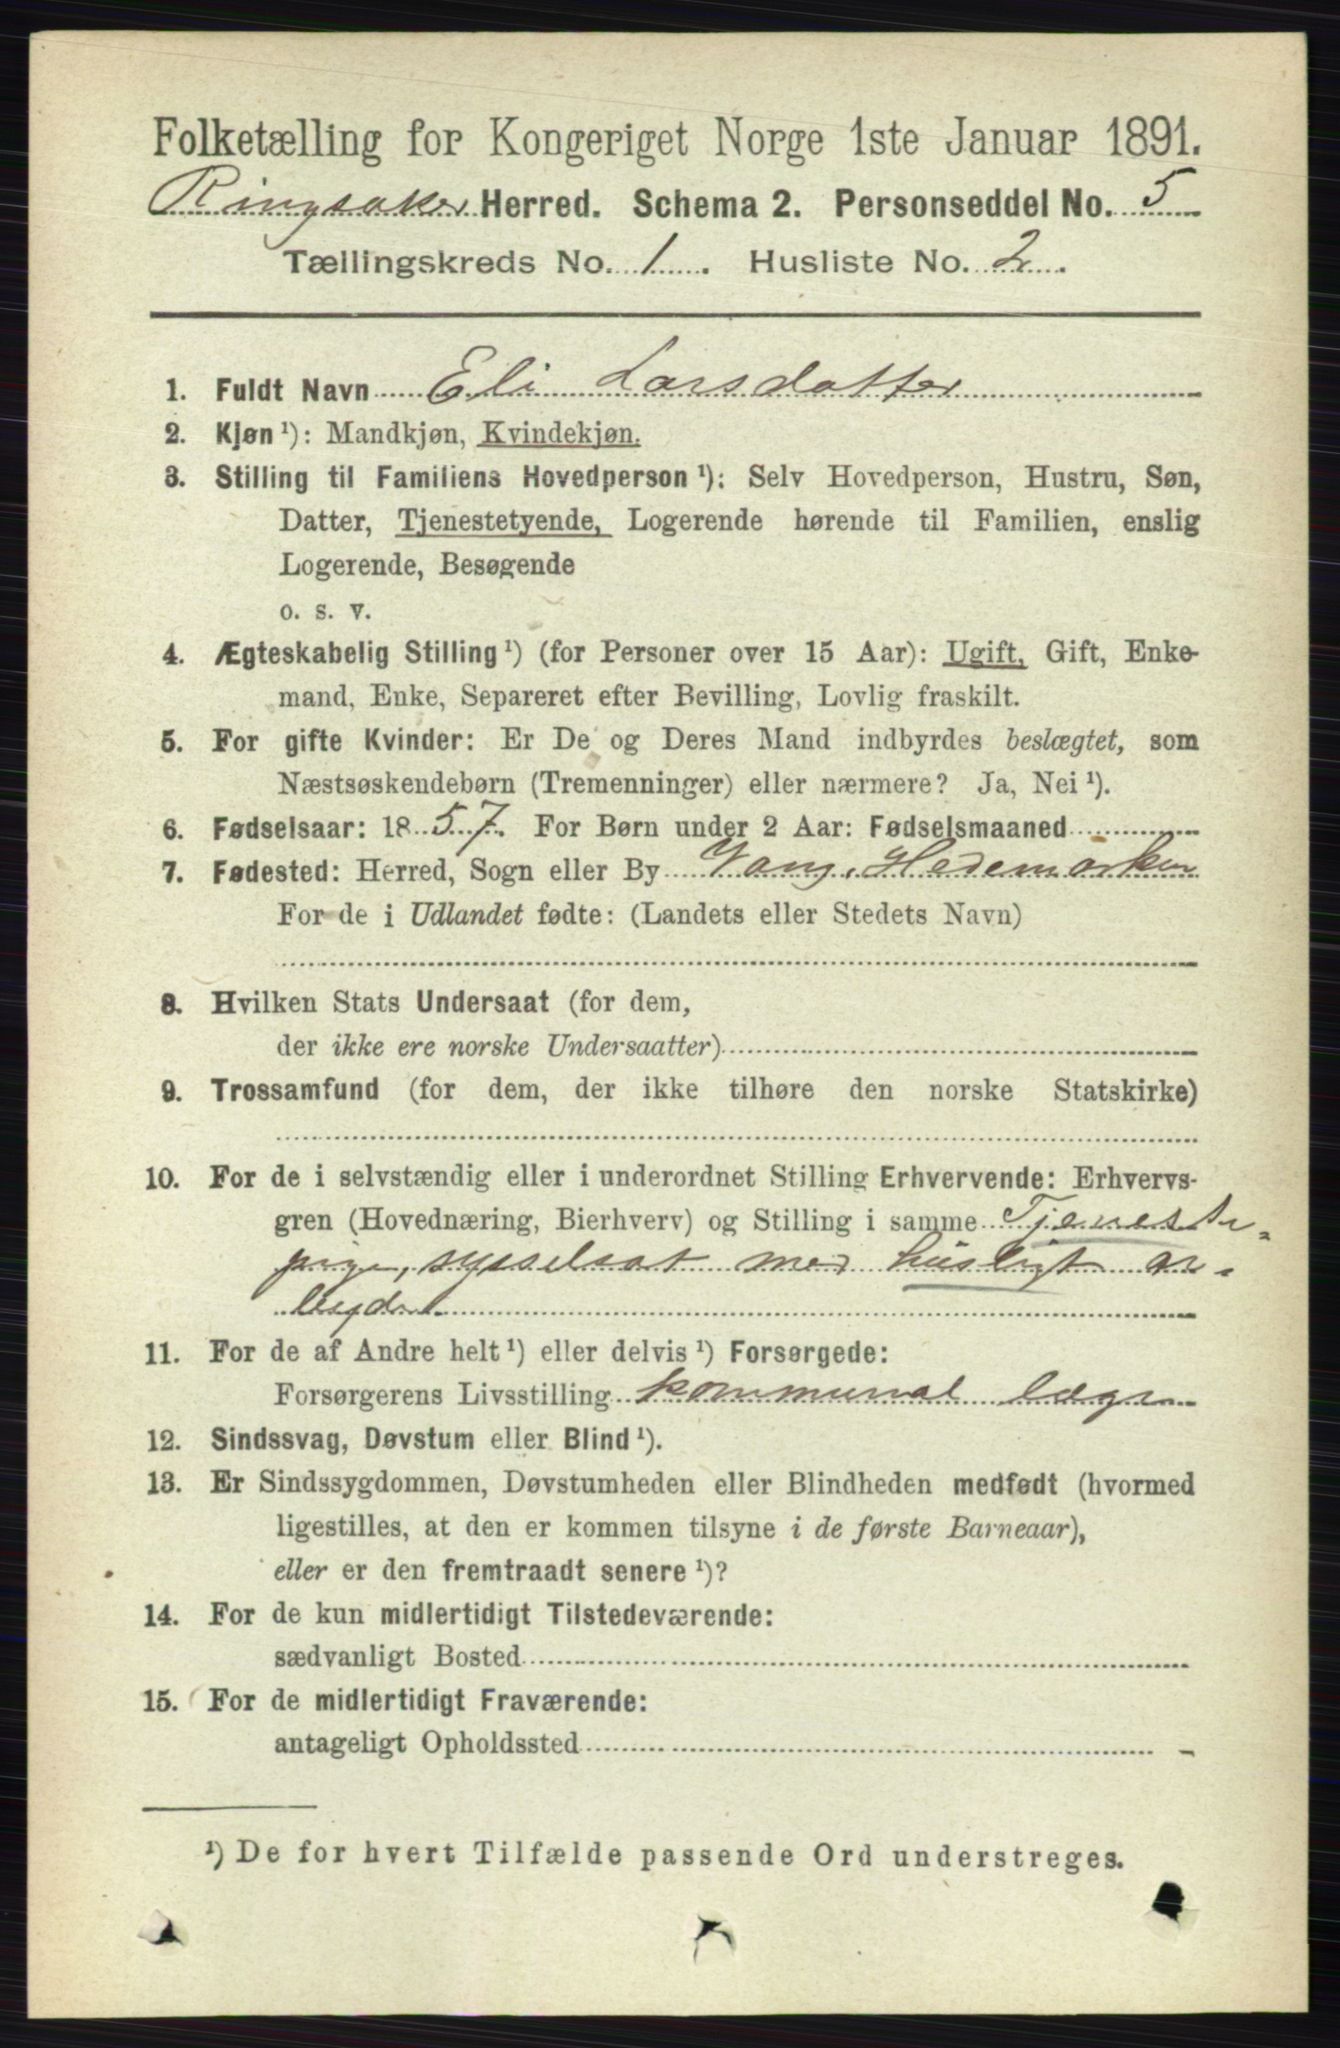 Folketælling for Kongeriget Norge 1ste Januar 1891.
Ringsaker Herred. Schema 2. Personseddel No. 5
Tællingskreds No. 1. Husliste No. 2.
1. Fuldt Navn Eli Larsdatter
2. Kjøn ¹): Mandkjøn, Kvindekjøn.
3. Stilling til Familiens Hovedperson ¹): Selv Hovedperson, Hustru, Søn,
Datter, Tjenestetyende, Logerende hørende til Familien, enslig
Logerende, Besøgende
o. s. v.
4. Ægteskabelig Stilling ¹) (for Personer over 15 Aar): Ugift, Gift, Enke-
mand, Enke, Separeret efter Bevilling, Lovlig fraskilt.
5. For gifte Kvinder: Er De og Deres Mand indbyrdes beslægtet, som
Næstsøskendebørn (Tremenninger) eller nærmere? Ja, Nei ¹).
6. Fødselsaar: 1857. For Børn under 2 Aar: Fødselsmaaned
7. Fødested: Herred, Sogn eller By Vang, Hedemarken
For de i Udlandet fødte: (Landets eller Stedets Navn)
8. Hvilken Stats Undersaat (for dem,
der ikke ere norske Undersaatter)
9. Trossamfund (for dem, der ikke tilhøre den norske Statskirke)
10. For de i selvstændig eller i underordnet Stilling Erhvervende: Erhvervs-
gren (Hovednæring, Bierhverv) og Stilling i samme Tjeneste-
pige, sysselsat med husligt ar-
beyde.
11. For de af Andre helt ¹) eller delvis ¹) Forsørgede:
Forsørgerens Livsstilling kommunal læge
12. Sindssvag, Døvstum eller Blind ¹).
13. Er Sindssygdommen, Døvstumheden eller Blindheden medfødt (hvormed
ligestilles, at den er kommen tilsyne i de første Barneaar),
eller er den fremtraadt senere ¹)?
14. For de kun midlertidigt Tilstedeværende:
sædvanligt Bosted
15. For de midlertidigt Fraværende:
antageligt Opholdssted
¹) De for hvert Tilfælde passende Ord understreges.